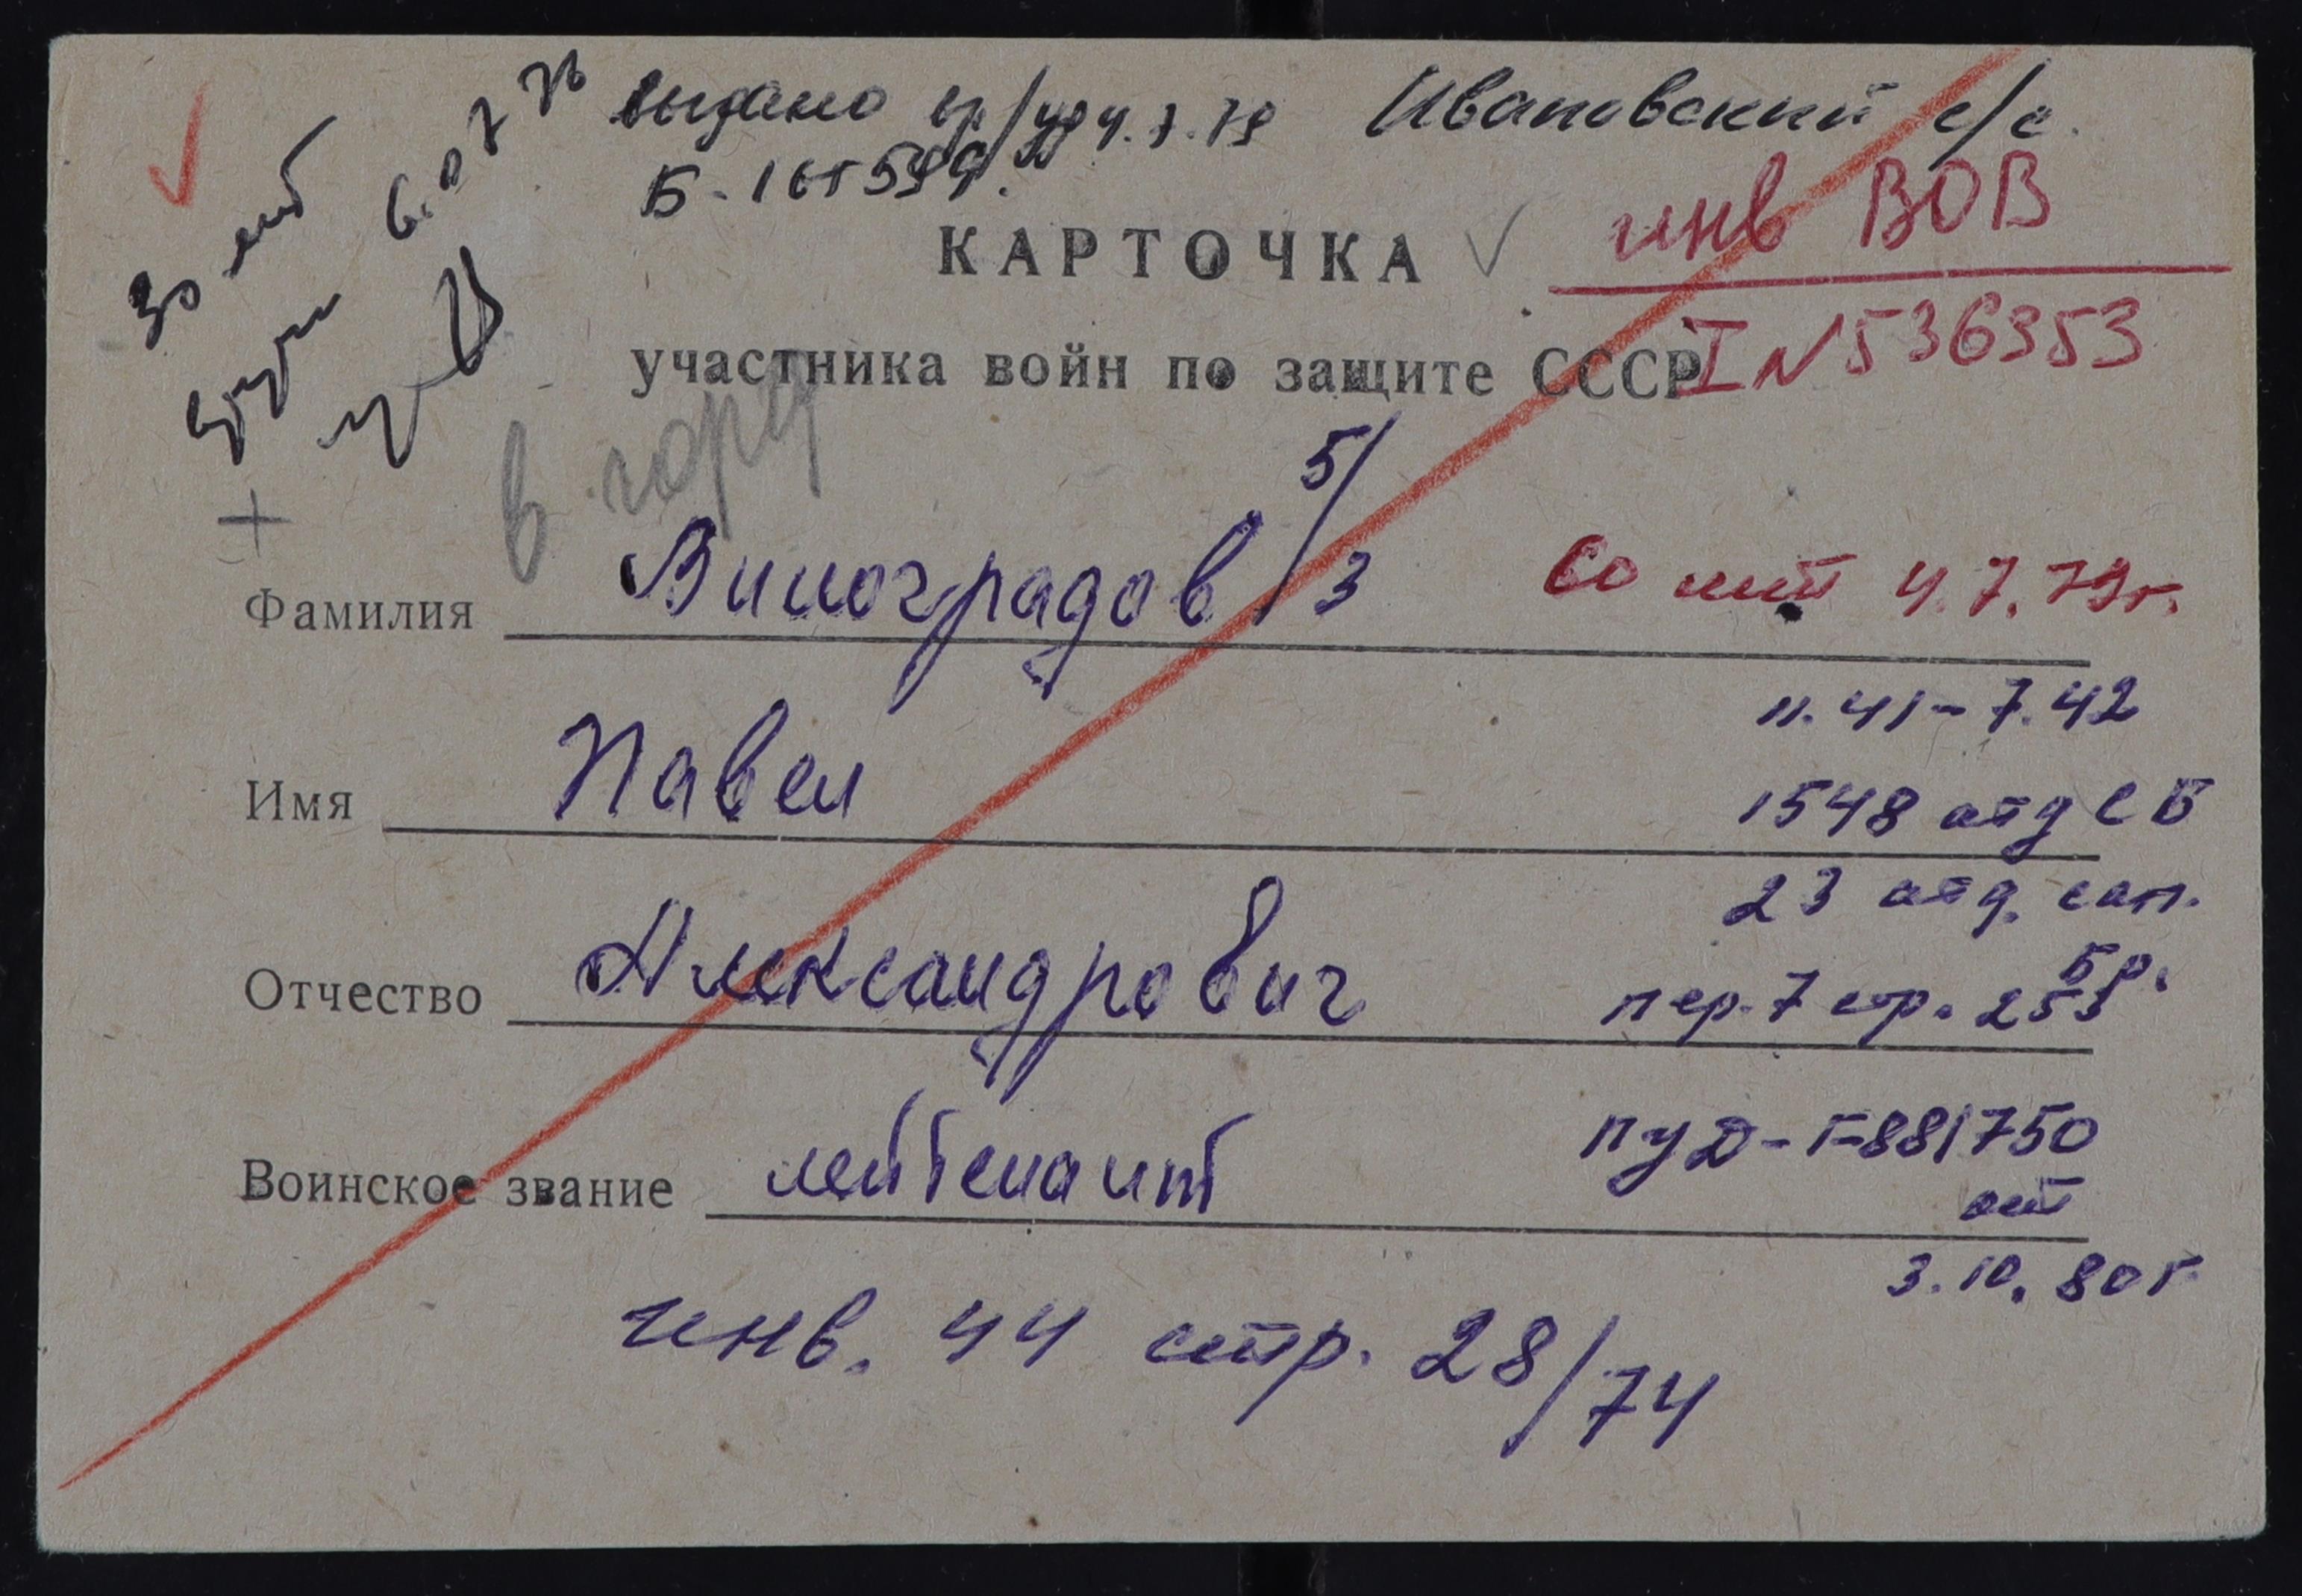 выдано
4.7.79 Ивановский с/с.
30 лет
6.07.76
КАРТОЧКА
инв ВОВ
участника войн по защите СССР
I N 536353
в гор
5/3
Фамилия Виноградов
со лит 4.7.79г.
11.41-7.42
Имя Павел
1548 отд СБ
23 отд. сап.
бр.
Отчество Александрович
пер. 7 стр. 253
Воинское звание лейтенант
ПУД-Г-881750
от
3.10.80г
инв. 44 стр. 28/74